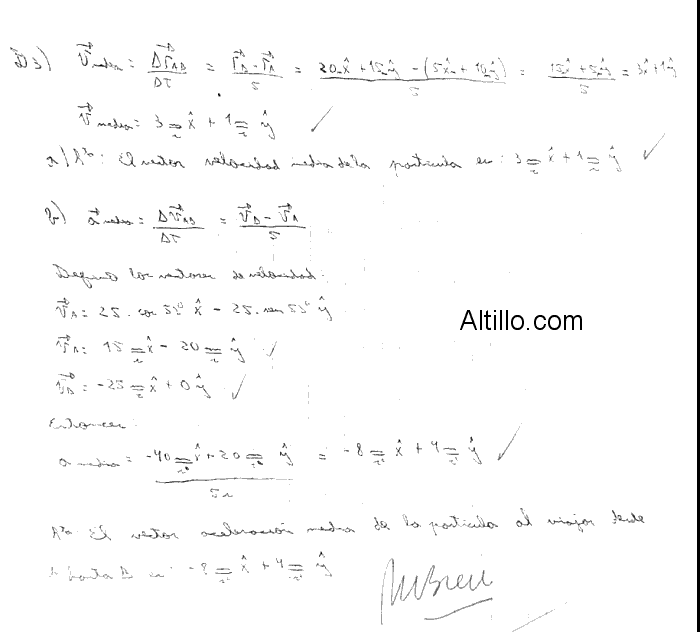 D3) V⃗media = Δr⃗AB/ΔT = (r⃗B - r⃗A)/5 = (20m x̂ + 15m ŷ - (5m x̂ + 10m ŷ))/5 = (15x̂ + 5m ŷ)/5 = 3x̂ + 1ŷ
V⃗media = 3 m/s x̂ + 1 m/s ŷ ✓
a) Rta: El vector velocidad media de la particula es: 3 m/s x̂ + 1 m/s ŷ ✓
b) a⃗media = ΔV⃗AB/ΔT = (V⃗B - V⃗A)/5
los vectores de velocidad:
V⃗A = 25 . cos 53° x̂ - 25 . sen 53° ŷ
Altillo.com
V⃗A = 15 m/s x̂ - 20 m/s ŷ ✓
V⃗B = -25 m/s x̂ + 0 ŷ ✓
Entonces:
a media = (-40 m/s x̂ + 20 m/s ŷ)/5s = -8 m/s² x̂ + 4 m/s² ŷ ✓
Rta: El vector aceleracion media de la particula al viajar desde
A hasta B es: -8 m/s² x̂ + 4 m/s² ŷ